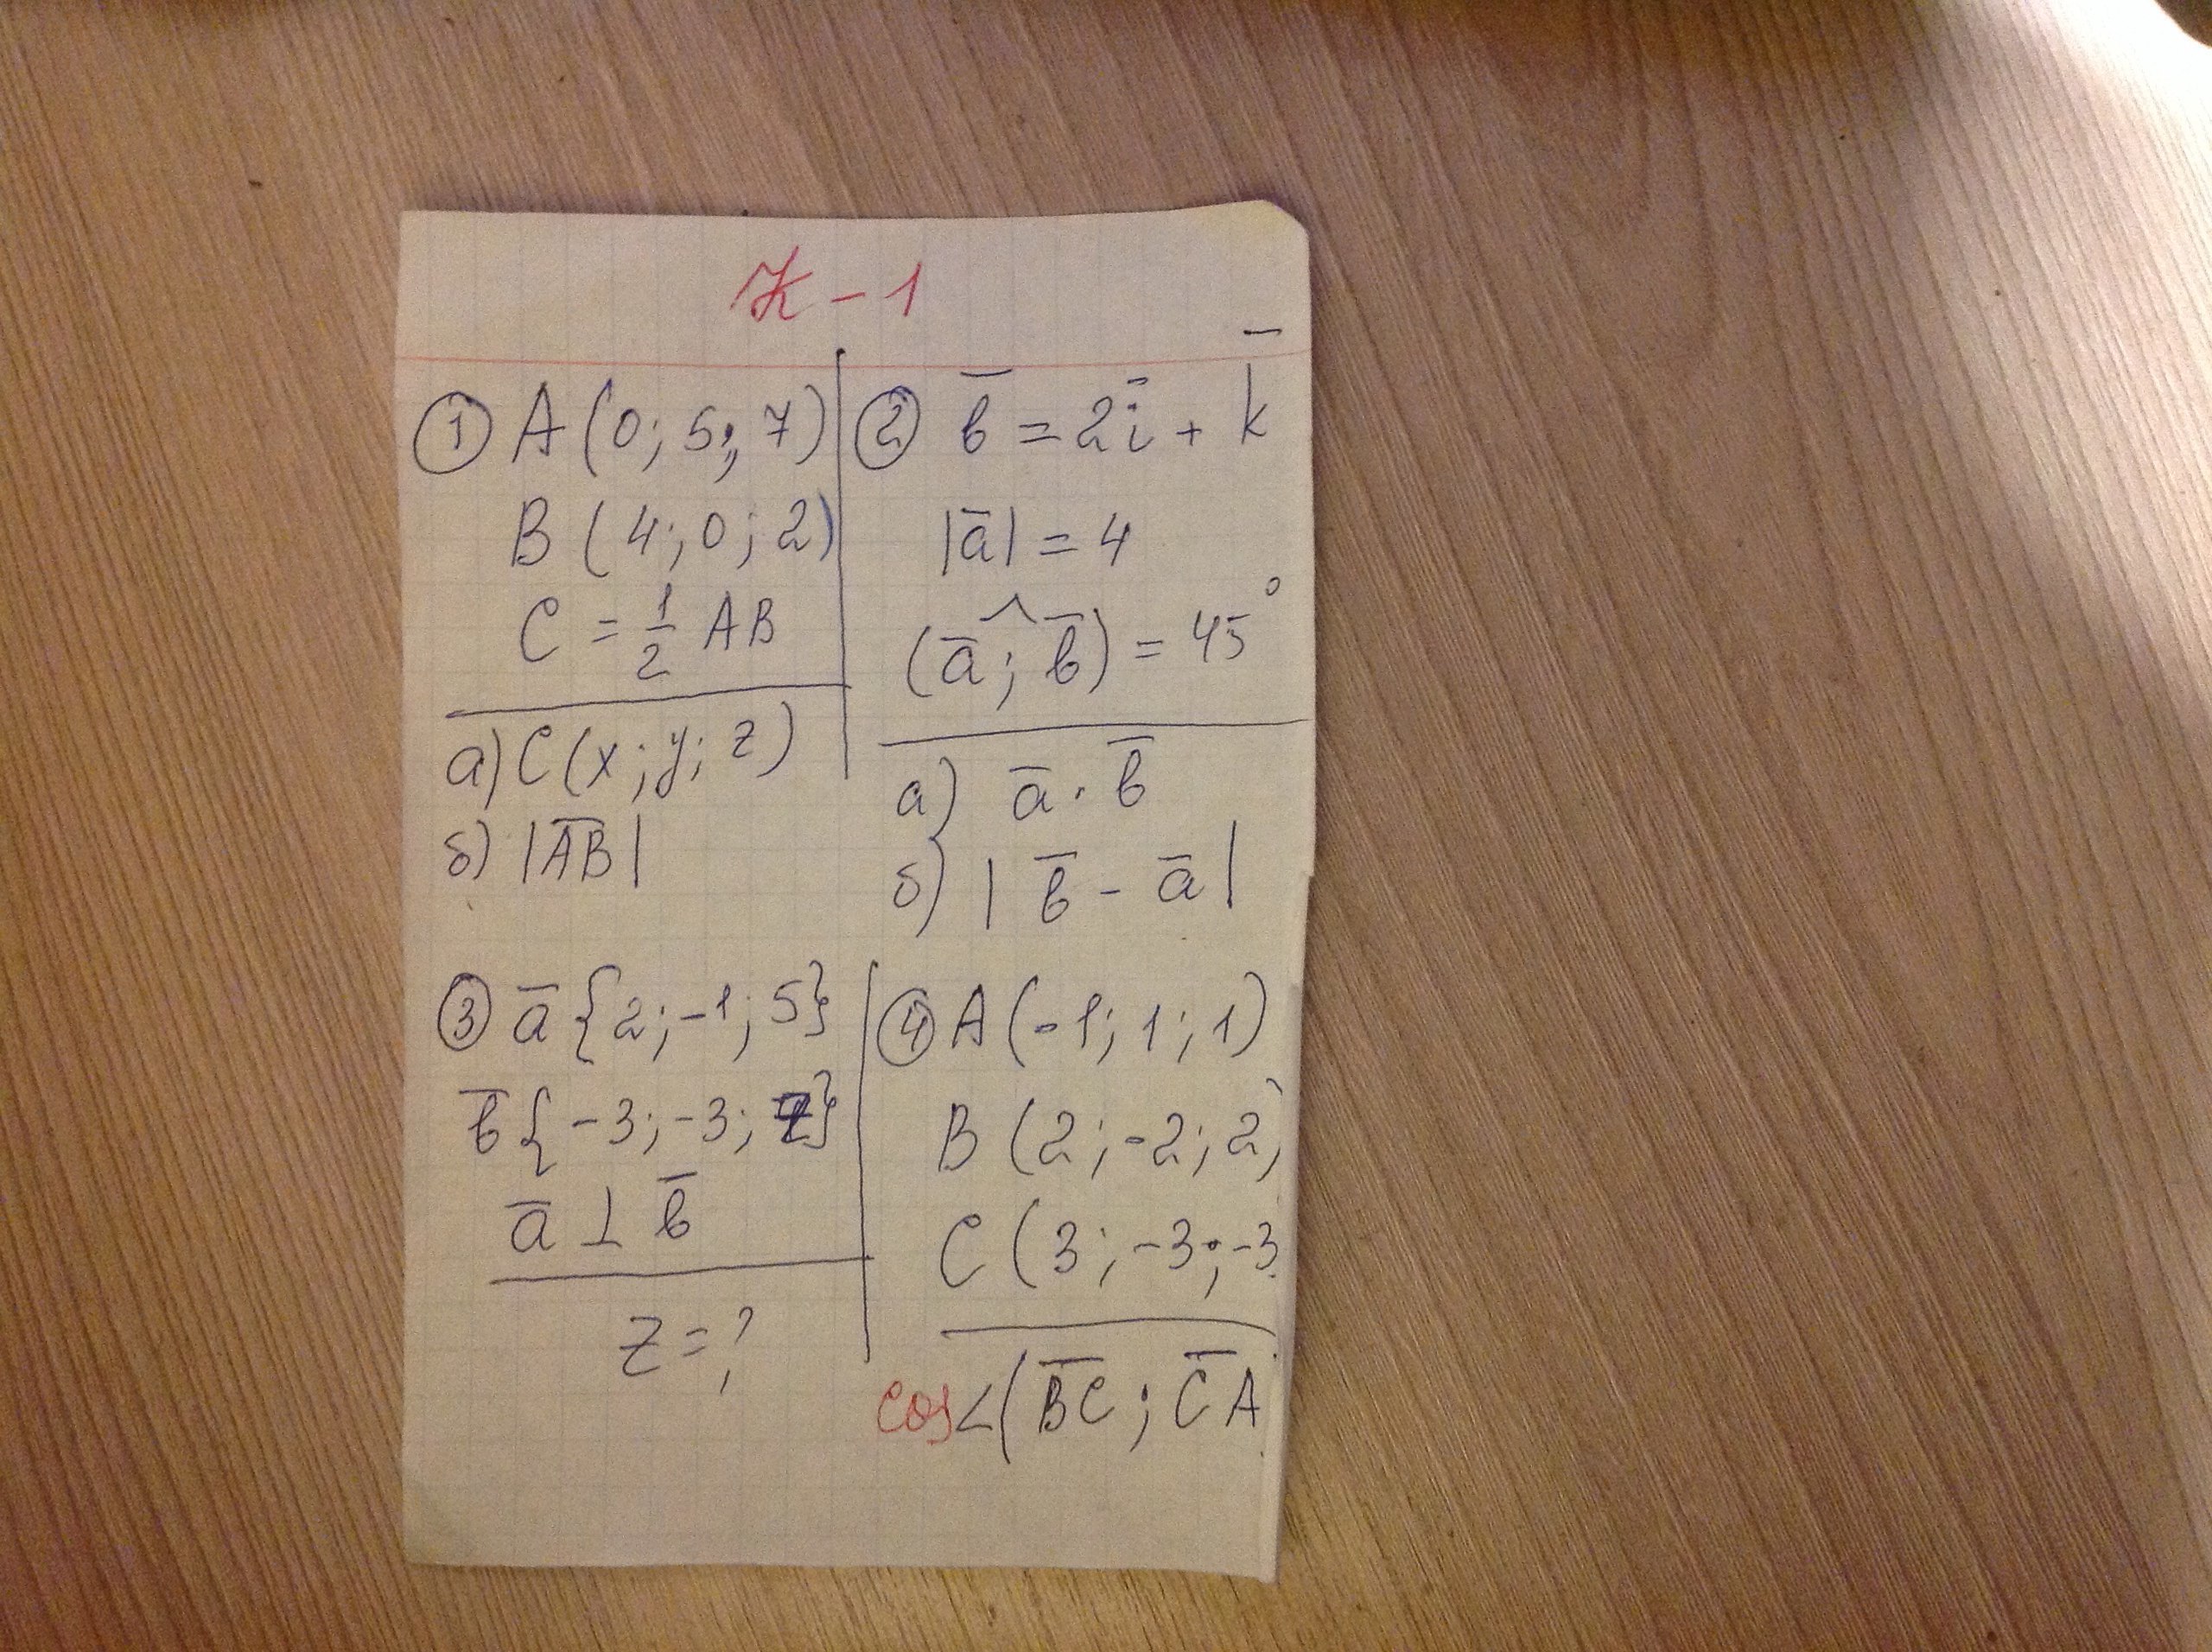 К - 1
① A (0; 5; 7)
B (4; 0; 2)
C = 1/2 AB
а) C (x; y; z)
б) |A̅B̅|
② b̅ = 2i̅ + k̅
|a̅| = 4
(a̅; b̅) = 45°
а) a̅ · b̅
б) | b̅ - a̅ |
③ a̅ {2; -1; 5}
b̅ { -3; -3; z}
a̅ ⊥ b̅
z = ?
④ A (-1; 1; 1)
B (2; -2; 2)
C (3; -3; -3
cos∠(B̅C̅; C̅A